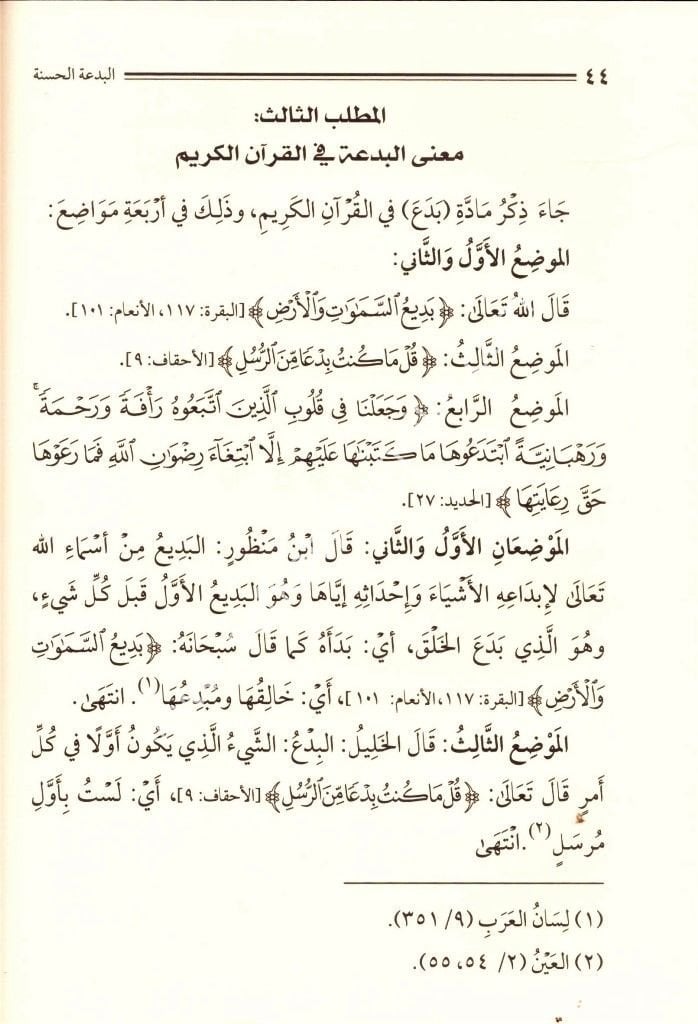 ٤٤ البدعة الحسنة
المطلب الثالث:
معنى البدعة في القرآن الكريم
جَاءَ ذِكْرُ مَادَّةِ (بَدَعَ) في القُرْآنِ الكَرِيمِ، وذَلِكَ في أرْبَعَةِ مَوَاضِعَ:
الموضِعُ الأَوَّلُ وَالثَّاني:
قَالَ اللهُ تَعَالَى: ﴿بَدِيعُ ٱلسَّمَٰوَٰتِ وَٱلْأَرْضِ﴾ [البقرة: ١١٧، الأنعام: ١٠١].
الموضِعُ الثَّالِثُ: ﴿قُلْ مَا كُنتُ بِدْعًا مِّنَ ٱلرُّسُلِ﴾ [الأحقاف: ٩].
الموضِعُ الرَّابعُ: ﴿وَجَعَلْنَا فِى قُلُوبِ ٱلَّذِينَ ٱتَّبَعُوهُ رَأْفَةً وَرَحْمَةً ۚ
وَرَهْبَانِيَّةً ٱبْتَدَعُوهَا مَا كَتَبْنَٰهَا عَلَيْهِمْ إِلَّا ٱبْتِغَآءَ رِضْوَٰنِ ٱللَّهِ فَمَا رَعَوْهَا
حَقَّ رِعَايَتِهَا﴾ [الحديد: ٢٧].
المَوْضِعَانِ الأَوَّلُ وَالثَّاني: قَالَ ابْنُ مَنْظُورٍ: البَدِيعُ مِنْ أسْمَاءِ الله
تَعَالَى لإِبْدَاعِهِ الأَشْيَاءَ وَإِحْدَاثِهِ إيَّاهَا وَهُوَ البَدِيعُ الأَوَّلُ قَبلَ كُلِّ شَيءٍ،
وهُوَ الَّذِي بَدَعَ الخَلْقَ، أيْ: بَدَأَهُ كَمَا قَالَ سُبْحَانَهُ: ﴿بَدِيعُ ٱلسَّمَٰوَٰتِ
وَٱلْأَرْضِ﴾ [البقرة: ١١٧، الأنعام: ١٠١]، أَيْ: خَالِقُهَا ومُبْدِعُهَا(١). انتَهَى.
المَوْضِعُ الثَّالثُ: قَالَ الخَلِيلُ: البِدْعُ: الشَّيءُ الَّذِي يَكُونُ أَوَّلًا في كُلِّ
أمرٍ قَالَ تَعَالَى: ﴿قُلْ مَا كُنتُ بِدْعًا مِّنَ ٱلرُّسُلِ﴾ [الأحقاف: ٩]، أَيْ: لَسْتُ بِأَوَّلِ
مُرسَلٍ(٢). انْتَهَىٰ
(١) لِسَانُ العَرَبِ (٩/ ٣٥١).
(٢) العَيْنُ (٢/ ٥٤، ٥٥).